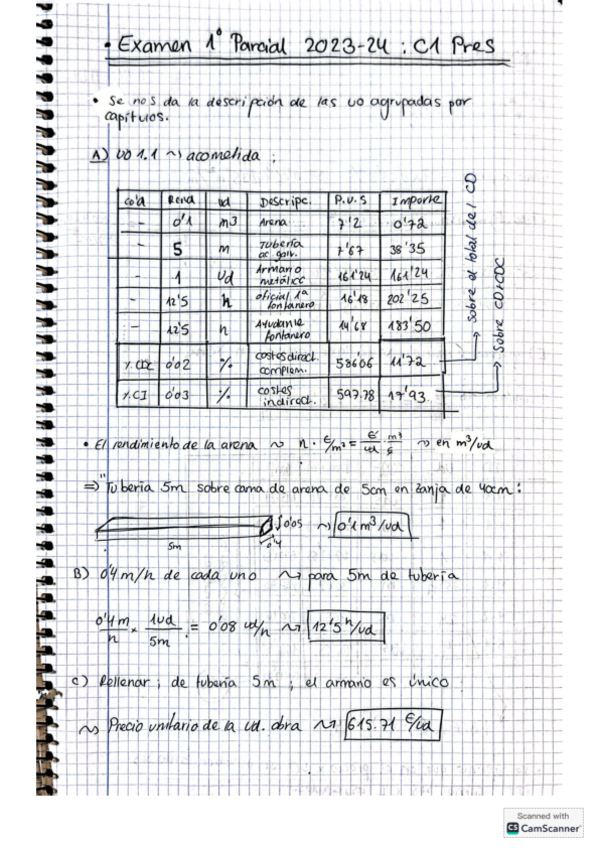 • Examen 1º Parcial 2023-24 : C1 Pres
• Se nos da la descripción de las uo agrupadas por
capítulos.
A) UO 1.1 ~> acometida :
cod Rend ud Descripc. P.U.S Importe
- 0'1 m3 Arena 7'2 0'72
- 5 m Tubería ac. galv. 7'67 38'35
- 1 Ud Armario metálico 161'24 161'24
- 12'5 h oficial 1ª fontanero 16'18 202'25
- 12'5 h Ayudante fontanero 14'68 183'50
%CDC 0'02 % costes direct. complem. 586'06 11'72
%CI 0'03 % costes indirect. 597.78 17'93
→ Sobre el total del CD
→ Sobre CD+CDC
• El rendimiento de la arena ~> n · €/m³ = €/ud m³/€ ~> en m³/ud
=> "Tubería 5m sobre cama de arena de 5cm en zanja de 40cm :
0'05 ~> 0'1 m³/ud
5m 0'4
B) 0'4 m/h de cada uno ~> para 5m de tubería
0'4 m/h × 1ud/5m = 0'08 ud/h ~> 12'5 h/ud
C) Rellenar ; de tubería 5m ; el armario es único
~> Precio unitario de la ud. obra ~> 615.71 €/ud
Scanned with
CS CamScanner